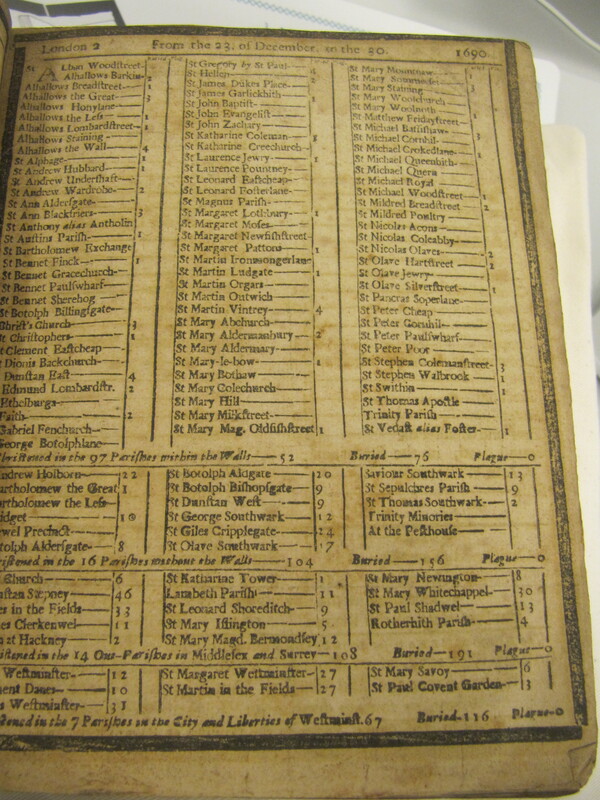 London 2 From the 23. of December, to the 30. 1690.
St Alban Woodſtreet
Alhallows Barkin 2
Alhallows Breadſtreet 1
Alhallows the Great 3
Alhallows Honylane
Alhallows the Leſs 1
Alhallows Lombardſtreet 1
Alhallows Staining
Alhallows the Wall 4
St Alphage 1
St Andrew Hubbard 1
St Andrew Underſhaft
St Andrew Wardrobe 2
St Ann Alderſgate
St Ann Blackfriers 3
St Anthony alias Antholin
St Auſtins Pariſh 1
St Bartholomew Exchange
St Bennet Finck 1
St Bennet Gracechurch
St Bennet Paulſwharf
St Bennet Sherehog
St Botolph Billingſgate
Chriſt's Church 3
St Chriſtophers 1
St Clement Eaſtcheap
St Dionis Backchurch
Dunſtan Eaſt 4
Edmund Lombardſtr. 2
Ethelburga
Faith 2
Gabriel Fenchurch
George Botolphlane
St Gregory by St Paul
St Hellen 4
St James Dukes Place 2
St James Garlickhith 1
St John Baptiſt
St John Evangeliſt
St John Zachary
St Katharine Coleman
St Katharine Creechurch
St Laurence Jewry 1
St Laurence Pountney
St Leonard Eaſtcheap
St Leonard Foſterlane
St Magnus Pariſh
St Margaret Lothbury 1
St Margaret Moſes
St Margaret Newfiſhſtreet
St Margaret Pattons 1
St Martin Ironmongerlane
St Martin Ludgate 1
St Martin Orgars
St Martin Outwich
St Martin Vintrey 4
St Mary Abchurch
St Mary Aldermanbury 2
St Mary Aldermary
St Mary-le-bow 1
St Mary Bothaw
St Mary Colechurch
St Mary Hill
St Mary Milkſtreet
St Mary Mag. Oldfiſhſtreet 1
St Mary Mounthaw
St Mary Sommerſet
St Mary Staining
St Mary Woolchurch
St Mary Woolnoth
St Matthew Fridayſtreet
St Michael Baſſiſhaw
St Michael Cornhil
St Michael Crokedlane
St Michael Queenhith
St Michael Quern
St Michael Royal
St Michael Woodſtreet 1
St Mildred Breadſtreet 2
St Mildred Poultry
St Nicolas Acons
St Nicolas Coleabby
St Nicolas Olaves
St Olave Hartſtreet
St Olave Jewry
St Olave Silverſtreet 1
St Pancras Soperlane
St Peter Cheap
St Peter Cornhil
St Peter Paulſwharf
St Peter Poor
St Stephen Colemanſtreet 3
St Stephen Walbrook 1
St Swithin 1
St Thomas Apoſtle
Trinity Pariſh
St Vedaſt alias Foſter 1
Chriſtened in the 97 Pariſhes within the Walls 52 Buried 76 Plague 0
Andrew Holborn 22
Bartholomew the Great 1
Bartholomew the Leſs
Bridget 10
Bridewel Precinct
Botolph Alderſgate 8
St Botolph Aldgate 20
St Botolph Biſhopſgate 9
St Dunſtan Weſt 9
St George Southwark 12
St Giles Cripplegate 24
St Olave Southwark 17
Saviour Southwark 13
St Sepulchres Pariſh 9
St Thomas Southwark 2
Trinity Minories
At the Peſthouſe
Chriſtened in the 16 Pariſhes without the Walls 104 Buried 156 Plague 0
Church 6
Dunſtan Stepney 46
Giles in the Fields 33
James Clerkenwel 11
John at Hackney 2
St Katharine Tower 1
Lambeth Pariſh 11
St Leonard Shoreditch 9
St Mary Iſlington 5
St Mary Magd. Bermondſey 12
St Mary Newington 8
St Mary Whitechappel 30
St Paul Shadwel 13
Rotherhith Pariſh 4
Chriſtened in the 14 Out-Pariſhes in Middleſex and Surrey 108 Buried 191 Plague 0
Weſtminſter 12
Clement Danes 10
Weſtminſter 31
St Margaret Weſtminſter 27
St Martin in the Fields 27
St Mary Savoy 6
St Paul Covent Garden 3
Chriſtened in the 7 Pariſhes in the City and Liberties of Weſtminſt. 67 Buried 116 Plague 0